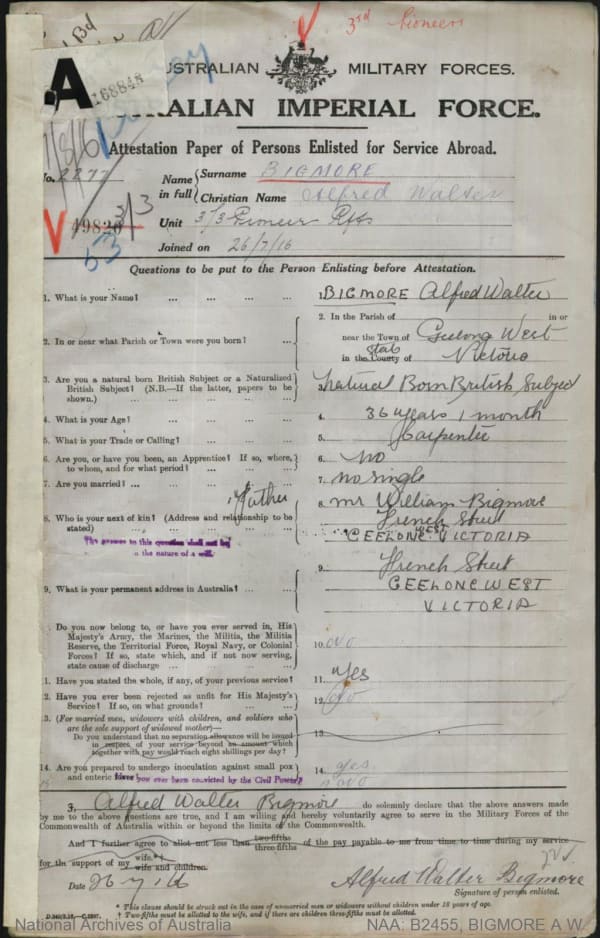 3rd Pioneers
A
168848
AUSTRALIAN MILITARY FORCES.
AUSTRALIAN IMPERIAL FORCE.
Attestation Paper of Persons Enlisted for Service Abroad.
No. 2277
Name in full { Surname BIGMORE
Christian Name Alfred Walter
Unit 3/3 Pioneer Rfts
Joined on 26/7/16
49820
53
Questions to be put to the Person Enlisting before Attestation.
1. What is your Name? ... ... ... ... 1. BIGMORE Alfred Walter
2. In or near what Parish or Town were you born? ... 2. In the Parish of in or
near the Town of Geelong West
in the County of State Victoria
3. Are you a natural born British Subject or a Naturalized British Subject? (N.B.—If the latter, papers to be shown.) ... 3. Natural Born British Subject
4. What is your Age? ... 4. 36 years 1 month
5. What is your Trade or Calling? ... 5. Carpenter
6. Are you, or have you been, an Apprentice? If so, where, to whom, and for what period? ... 6. No
7. Are you married? ... 7. no single
8. Who is your next of kin? (Address and relationship to be stated) ... Father 8. Mr William Bigmore
French Street
GEELONG WEST VICTORIA
The answer to this question shall not be
n the nature of a will.
9. What is your permanent address in Australia? ... 9. French Street
GEELONG WEST
VICTORIA
Do you now belong to, or have you ever served in, His Majesty's Army, the Marines, the Militia, the Militia Reserve, the Territorial Force, Royal Navy, or Colonial Forces? If so, state which, and if not now serving, state cause of discharge ... 10. No
1. Have you stated the whole, if any, of your previous service? 11. Yes
2. Have you ever been rejected as unfit for His Majesty's Service? If so, on what grounds? ... 12. No
3. (For married men, widowers with children, and soldiers who are the sole support of widowed mother)—
Do you understand that no separation allowance will be issued in respect of your service beyond an amount which together with pay would reach eight shillings per day? 13.
14. Are you prepared to undergo inoculation against small pox and enteric fever? 14. Yes.
Have you ever been convicted by the Civil Power? No
I, Alfred Walter Bigmore do solemnly declare that the above answers made
by me to the above questions are true, and I am willing and hereby voluntarily agree to serve in the Military Forces of the
Commonwealth of Australia within or beyond the limits of the Commonwealth.
And I further agree to allot not less than two-fifths three-fifths of the pay payable to me from time to time during my service
for the support of my wife.*† wife and children.
Date 26 7 16
Alfred Walter Bigmore
Signature of person enlisted.
* This clause should be struck out in the case of unmarried men or widowers without children under 18 years of age.
† Two-fifths must be allotted to the wife, and if there are children three-fifths must be allotted.
National Archives of Australia
NAA: B2455, BIGMORE A W.